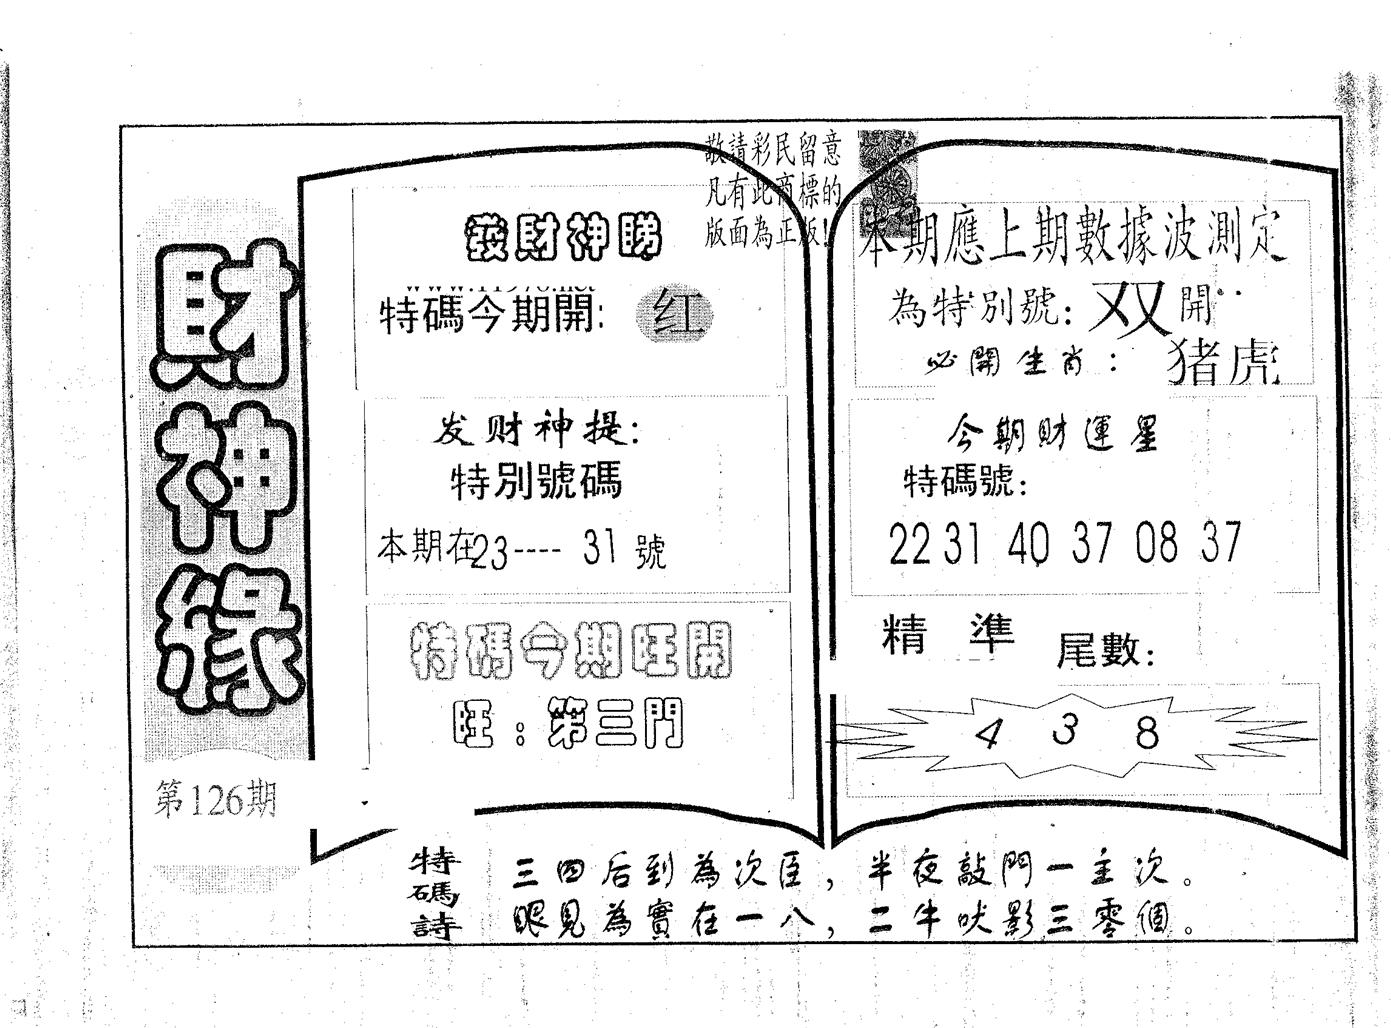 敬請彩民留意
凡有此商標的
版面為正版!
財神緣
第126期
發財神睇
www.11978.net
特碼今期開: 红
发财神提:
特別號碼
本期在23---- 31 號
特碼今期旺開
旺: 第三門
本期應上期數據波測定
為特別號: 双 開
必開生肖: 猪虎
今期財運星
特碼號:
22 31 40 37 08 37
精 準 尾數:
4 3 8
特碼詩
三四后到為次臣, 半夜敲門一主次。
眼見為實在一八, 二牛吠影三零個。